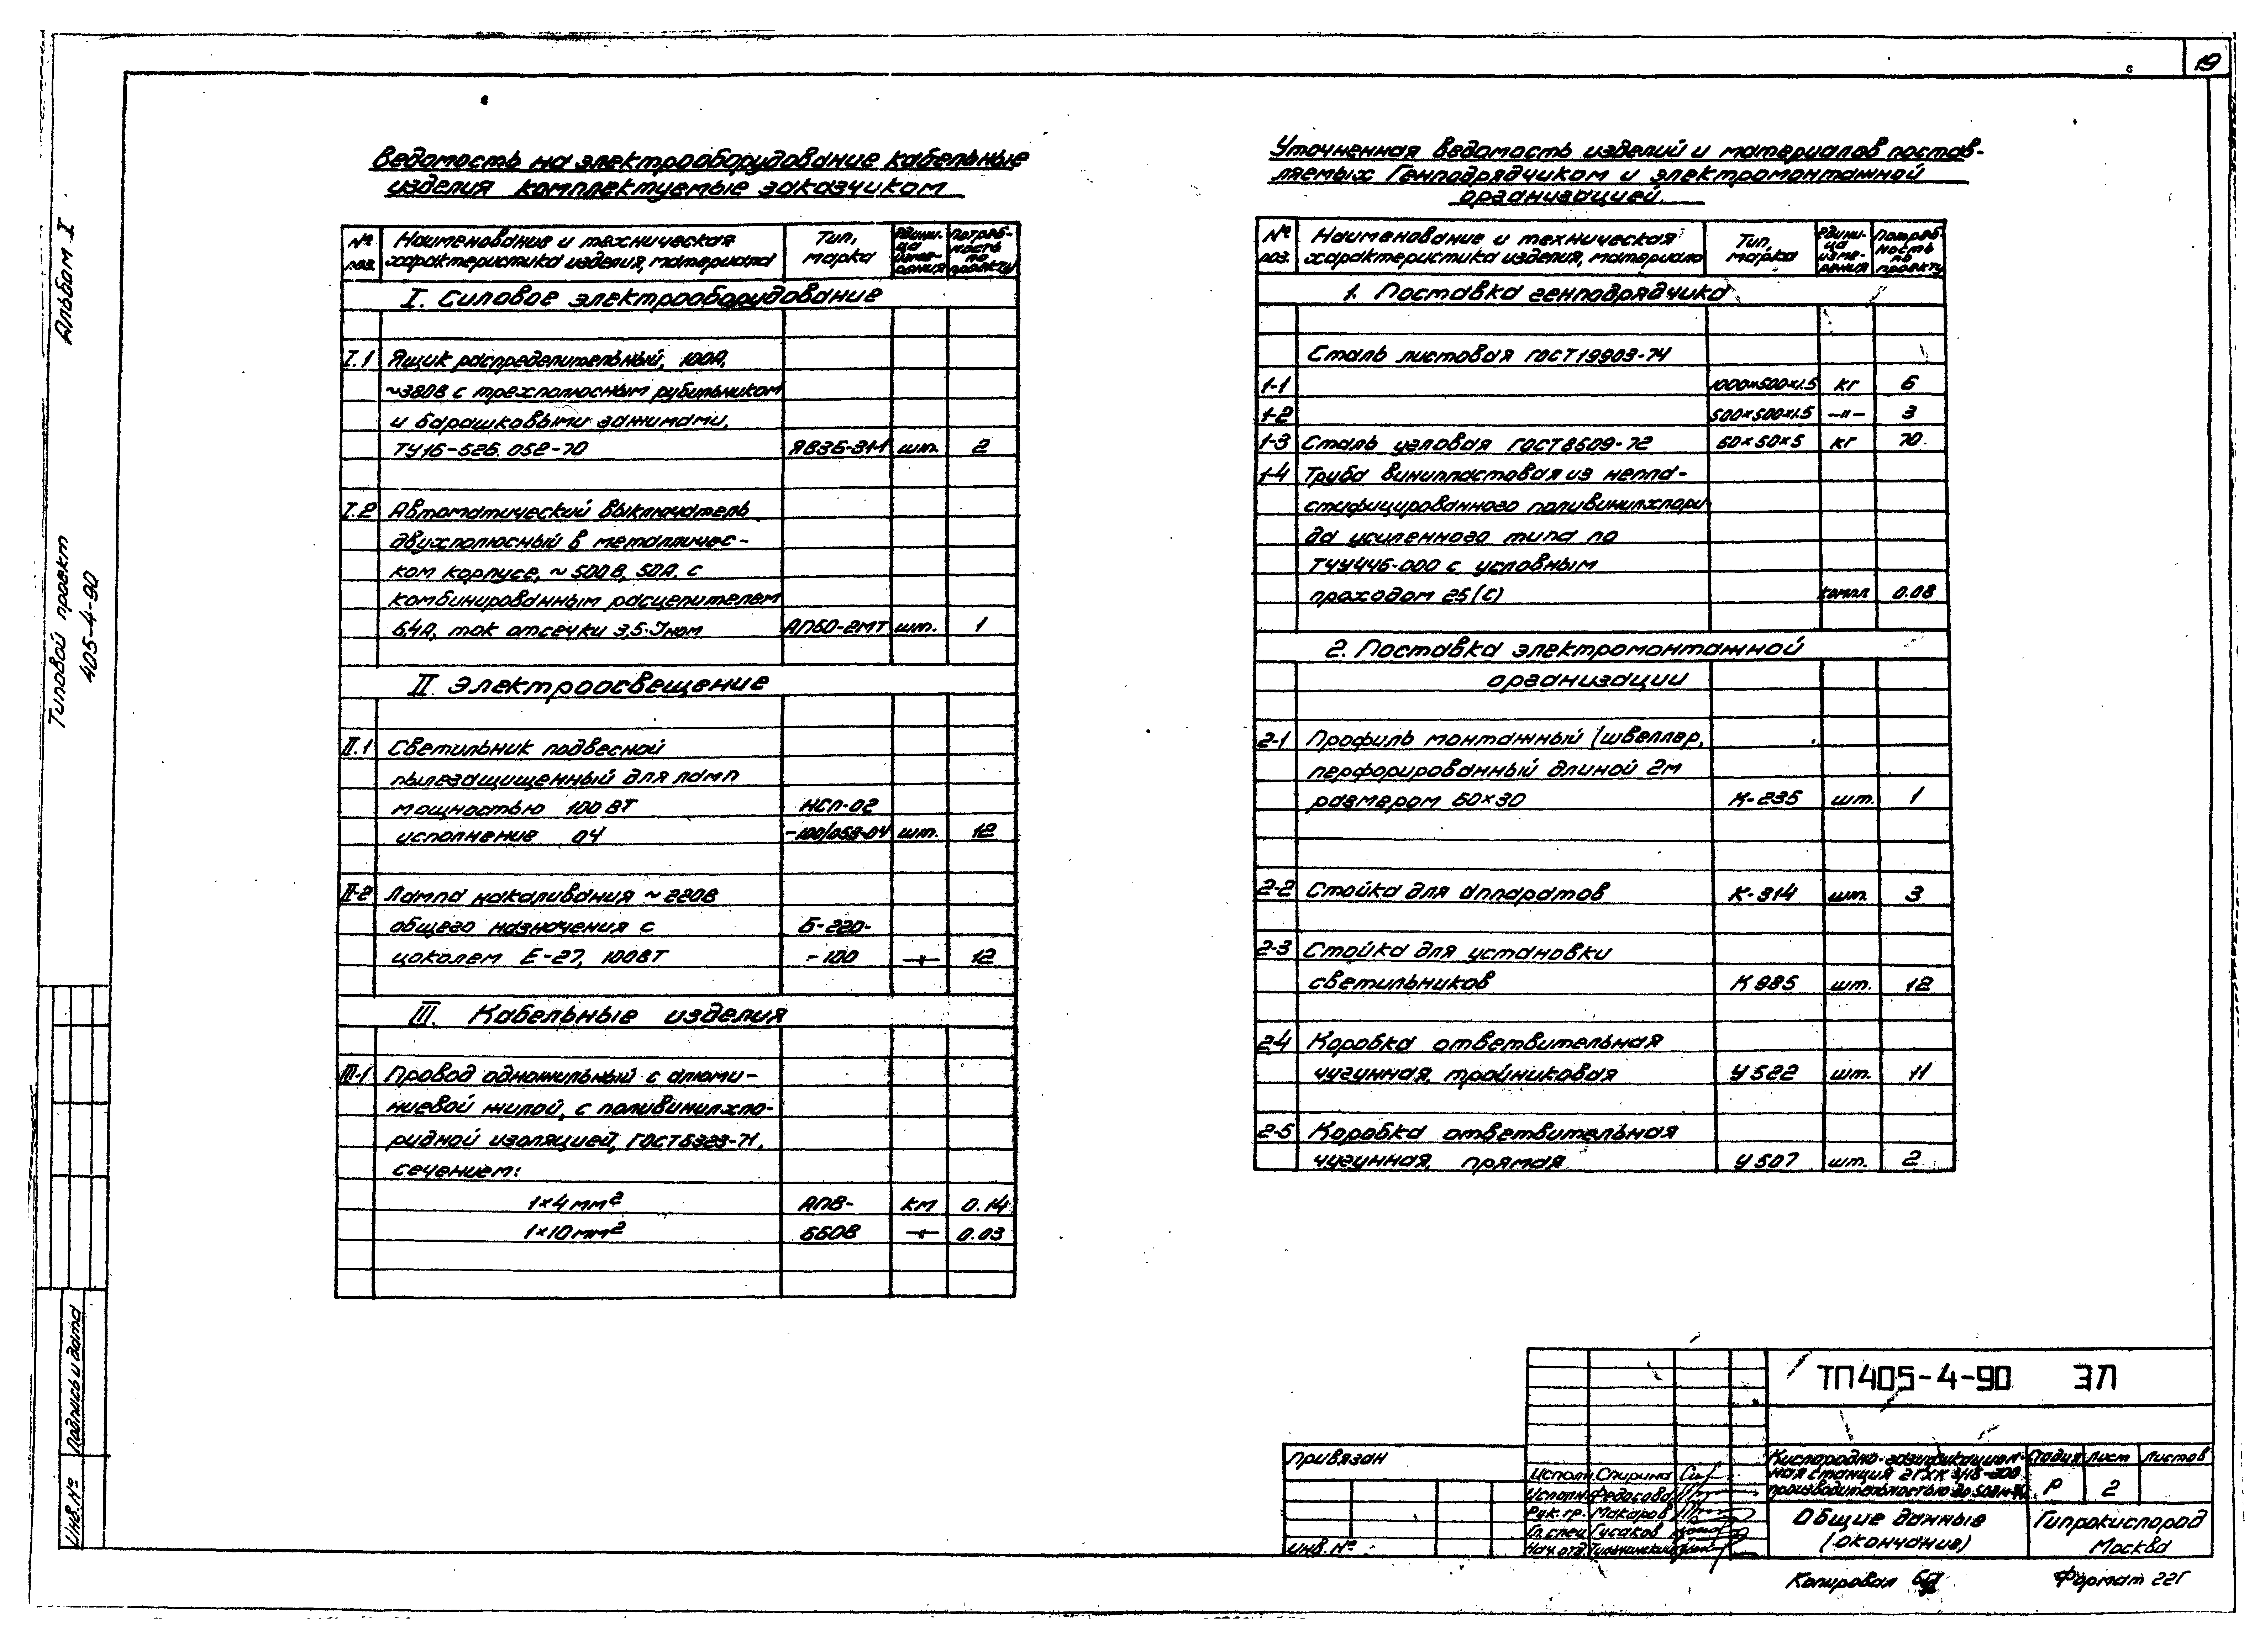 19
Альбом I
Типовой проект
405-4-90
Ведомость на электрооборудование кабельные
изделия комплектуемые заказчиком
№ поз. | Наименование и техническая характеристика изделия, материала | Тип, марка | Едини-ца изме-рения | Потреб-ность по проекту
I. Силовое электрооборудование
I.1 Ящик распределительный, 100А,
~380В с трехполюсным рубильником
и барашковыми зажимами,
ТУ16-526.052-70 ЯВ3Б-31-1 шт. 2
I.2 Автоматический выключатель
двухполюсный в металличес-
ком корпусе, ~500В, 50А, с
комбинированным расцепителем
6,4А, ток отсечки 3,5·Iном АП50-2МТ шт. 1
II. Электроосвещение
II.1 Светильник подвесной
пылезащищенный для ламп
мощностью 100ВТ НСП-02
исполнение 04 -100/053-04 шт. 12
II-2 Лампа накаливания ~220В
общего назначения с Б-220-
цоколем Е-27, 100ВТ -100 -"- 12
III. Кабельные изделия
III-1 Провод одножильный с алюми-
ниевой жилой, с поливинилхло-
ридной изоляцией, ГОСТ6323-71,
сечением:
1×4мм² АПВ- км 0.14
1×10мм² 660В -"- 0.03
Уточненная ведомость изделий и материалов постав-
ляемых Генподрядчиком и электромонтажной
организацией.
№ поз. | Наименование и техническая характеристика изделия, материала | Тип, марка | Едини-ца изме-рения | Потреб-ность по проекту
1. Поставка генподрядчика
Сталь листовая ГОСТ19903-74
1-1 1000×500×1.5 кг 6
1-2 500×500×1.5 -"- 3
1-3 Сталь угловая ГОСТ8509-72 50×50×5 кг 70.
1-4 Труба винипластовая из непла-
стифицированного поливинилхлори-
да усиленного типа по
с условным
проходом 25(С) компл 0.08
2. Поставка электромонтажной
организации
2-1 Профиль монтажный (швеллер,
перфорированный длиной 2м
размером 60×30 К-235 шт. 1
2-2 Стойка для аппаратов К-314 шт. 3
2-3 Стойка для установки
светильников К985 шт. 12
2-4 Коробка ответвительная
чугунная, тройниковая У522 шт. 11
2-5 Коробка ответвительная
чугунная, прямая У507 шт. 2
Инв.№ Подпись и дата
ТП405-4-90 ЭЛ
Привязан
Инв.№
Исполн. Спирина
Исполн. Федосова
Рук.гр. Макаров
Гл.спец Гусаков
Нач.отд.
Кислородно-газификацион-
ная станция
производительностью до
Стадия Лист Листов
Р 2
Общие данные
(окончание)
Гипрокислород
Москва
Копировал
Формат 22Г